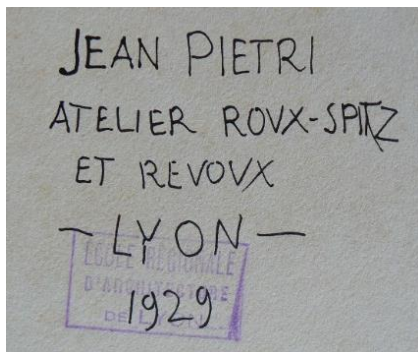 JEAN PIETRI
ATELIER ROVX-SPITZ
ET REVOVX
— LYON —
ECOLE REGIONALE
D'ARCHITECTURE
1929
DE LYON